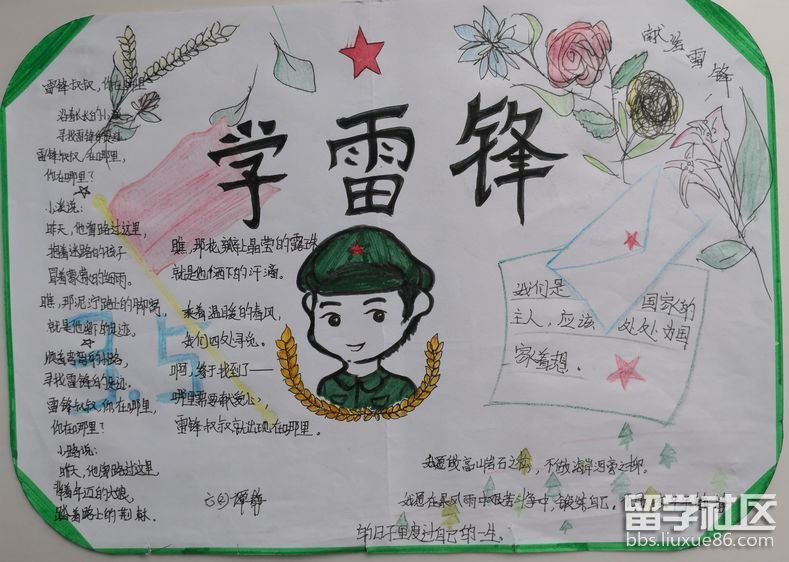 学雷锋
献给雷锋
雷锋叔叔,你在哪里
沿着长长的小溪
寻找雷锋的足迹
雷锋叔叔,你在哪里,
你在哪里?
小溪说:
昨天,他曾路过这里,
抱着迷路的孩子
冒着蒙蒙的细雨。
瞧,那泥泞路上的脚窝,
就是他留下的足迹。
顺着弯弯的小路,
寻找雷锋的足迹。
雷锋叔叔,你在哪里,
你在哪里?
小路说:
昨天,他曾路过这里
背着年迈的大娘,
踏着路上的荆棘。
瞧,那花瓣上晶莹的露珠
就是他洒下的汗滴。
乘着温暖的春风,
我们四处寻觅。
啊,终于找到了——
哪里需要献爱心,
雷锋叔叔就出现在哪里。
3.5
我们是国家的
主人,应该处处为国
家着想。
我愿做高山岩石之松,不做海岸河旁之柳。
我愿在暴风雨中艰苦斗争中,锻炼自己,
的日子里度过自己的一生。
留学社区
bbs.liuxue86.com